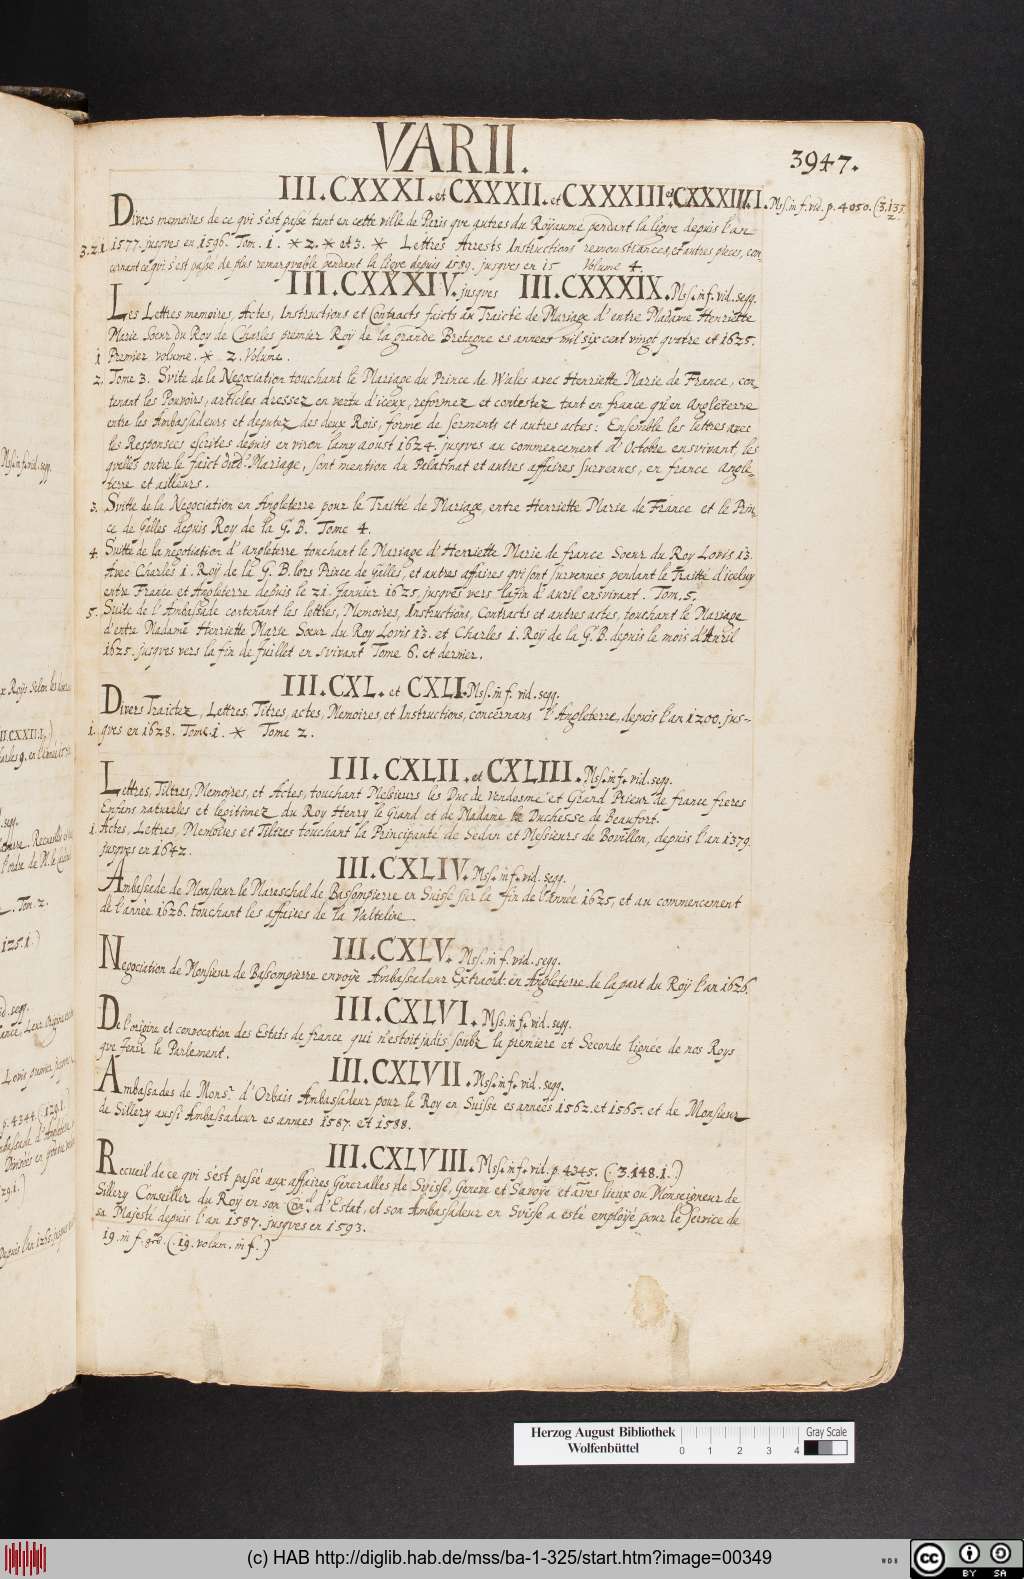 VARII.
3947.
III. CXXXI. et CXXXII. et CXXXIII. et CXXXIIII. I. Mss. in f. vid. p. 4050. (3.133.
2.
Divers memoires de ce qui s'est passe tant en cette ville de Paris que autres du Royaume pendant la ligve depuis l'an
3.2.1. 1577. jusqves en 1596. Tom. 1. * 2. * et 3. * Lettres Arrests Instructions remonstrances, et autres pieces, con-
cernant ce qui s'est passe de plus remarquable pendant la ligve depuis 1589. jusqves en 15 Volume 4.
III. CXXXIV. jusqves III. CXXXIX. Mss. in f. vid. seqq.
Les Lettres memoires, Actes, Instructions et Contracts faicts au Traicte de Mariage d'entre Madame Henriette
Marie Soeur du Roy de Charles premier Roy de la grande Bretagne es annees mil six cent vingt qvatre et 1625.
1 Premier volume. * 2. Volume.
2. Tome 3. Svite de la Negociation touchant le Mariage du Prince de Wales avec Henriette Marie de France, con-
tenant les Pouvoirs, articles dressez en vertu d'iceux, reformez et contestez tant en france qu'en Angleterre
entre les Ambassadeurs et deputez des deux Rois, forme de serments et autres actes: Ensemble les lettres avec
les Responses escrites depuis en viron lamy aoust 1624. jusqves au commencement d'Octobre ensvivant, les
qvelles outre le faict dud. Mariage, sont mention du Palatinat et autres affaires survenues, en france Angle-
terre et ailleurs.
3. Svitte de la Negociation en Angleterre pour le Traitté de Mariage, entre Henriette Marie de France et le Prin-
ce de Galles depuis Roy de la G. B. Tome 4.
4. Suitte de la negotiation d'angleterre touchant le Mariage d'Henriette Marie de france Soeur du Roy Lovis 13.
Avec Charles 1. Roy de la G. B. lors Prince de Galles, et autres affaires qvi sont survenues pendant le Traitté d'iceluy
entre France et Angleterre depuis le 21. Janvier 1625. jusqves vers la fin d'avril ensvivant. Tom. 5.
5. Suite de l'Ambassade contenant les lettres, Memoires, Instructions, Contracts et autres actes, touchant le Mariage
d'entre Madame Henriette Marie Soeur du Roy Lovis 13. et Charles 1. Roy de la G. B. depuis le mois d'Avril
1625. jusqves vers la fin de fuillet en svivant Tome 6. et dernier.
III. CXL. et CXLI. Mss. in f. vid. seqq.
Divers Traictez, Lettres, Titres, actes, Memoires, et Instructions, concernans l'Angleterre, depuis l'an 1200. jus-
1. qves en 1628. Tome. 1. * Tome 2.
III. CXLII. et CXLIII. Mss. in f. vid. seqq.
Lettres, Tiltres, Memoires, et Actes, touchant Messieurs les Duc de Vendosme et Grand Prieur de france freres
Enfans naturales et legitimez du Roy Henry le Grand et de Madame la Duchesse de Beaufort.
1. Actes, Lettres, Memoires et Tiltres touchant la Principauté de Sedan et Messieurs de Bouillon, depuis l'an 1379.
jusqves en 1642.
III. CXLIV. Mss. in f. vid. seqq.
Ambassade de Monsieur le Mareschal de Bassompierre en Suisse sur la fin de l'Année 1625, et au commencement
de l'année 1626. touchant les affaires de la Valteline.
III. CXLV. Mss. in f. vid. seqq.
Negociation de Monsieur de Bassompierre envoye Ambassadeur Extraord. en Angleterre de la part du Roy l'an 1626.
III. CXLVI. Mss. in f. vid. seqq.
De l'origine et convocation des Estats de france qui n'estoit jadis soubz la premiere et Seconde lignée de nos Roys
qve Tenir le Parlement.
III. CXLVII. Mss. in f. vid. seqq.
Ambassades de Mons. d'Orbais Ambassadeur pour le Roy en Suisse es années 1562. et 1565. et de Monsieur
de Sillery aussi Ambassadeur es annees 1587. et 1588.
III. CXLVIII. Mss. in f. vid. p. 4345. (3.148.1.)
Recueil de ce qui s'est passé aux affaires Generalles de Svisse, Geneve et Savoye et aves lieux ou Monseigneur de
Sillery Conseiller du Roy en son Con.el d'Estat, et son Ambassadeur en Svisse a esté employé pour le service de
sa Majesté depuis l'an 1587. jusqves en 1593.
19. in f. grd. (19. volum. in f.)
Herzog August Bibliothek
Wolfenbüttel
0 1 2 3 4
Gray Scale
(c) HAB http://diglib.hab.de/mss/ba-1-325/start.htm?image=00349
WDB
cc BY SA